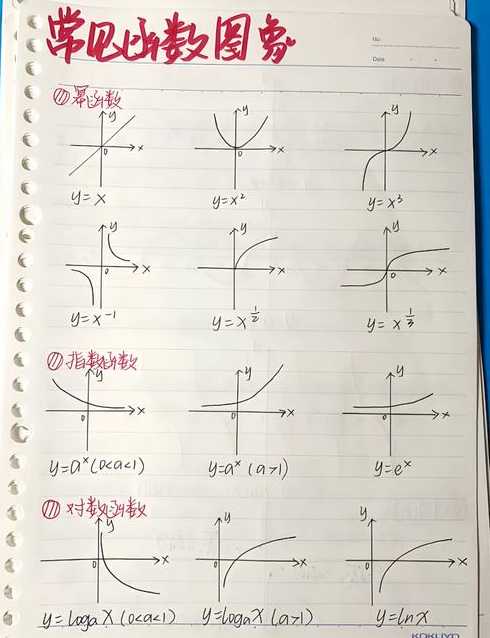 常见函数图象
No.
Date
幂函数
y y y
0 x 0 x 0 x
y=x y=x² y=x³
y y y
0 x 0 x 0 x
y=x⁻¹ y=x^½ y=x^⅓
指数函数
y y y
0 x 0 x 0 x
y=aˣ(0<a<1) y=aˣ(a>1) y=eˣ
对数函数
y y y
0 x 0 x 0 x
y=logₐx(0<a<1) y=logₐx(a>1) y=lnx
KOKUYO